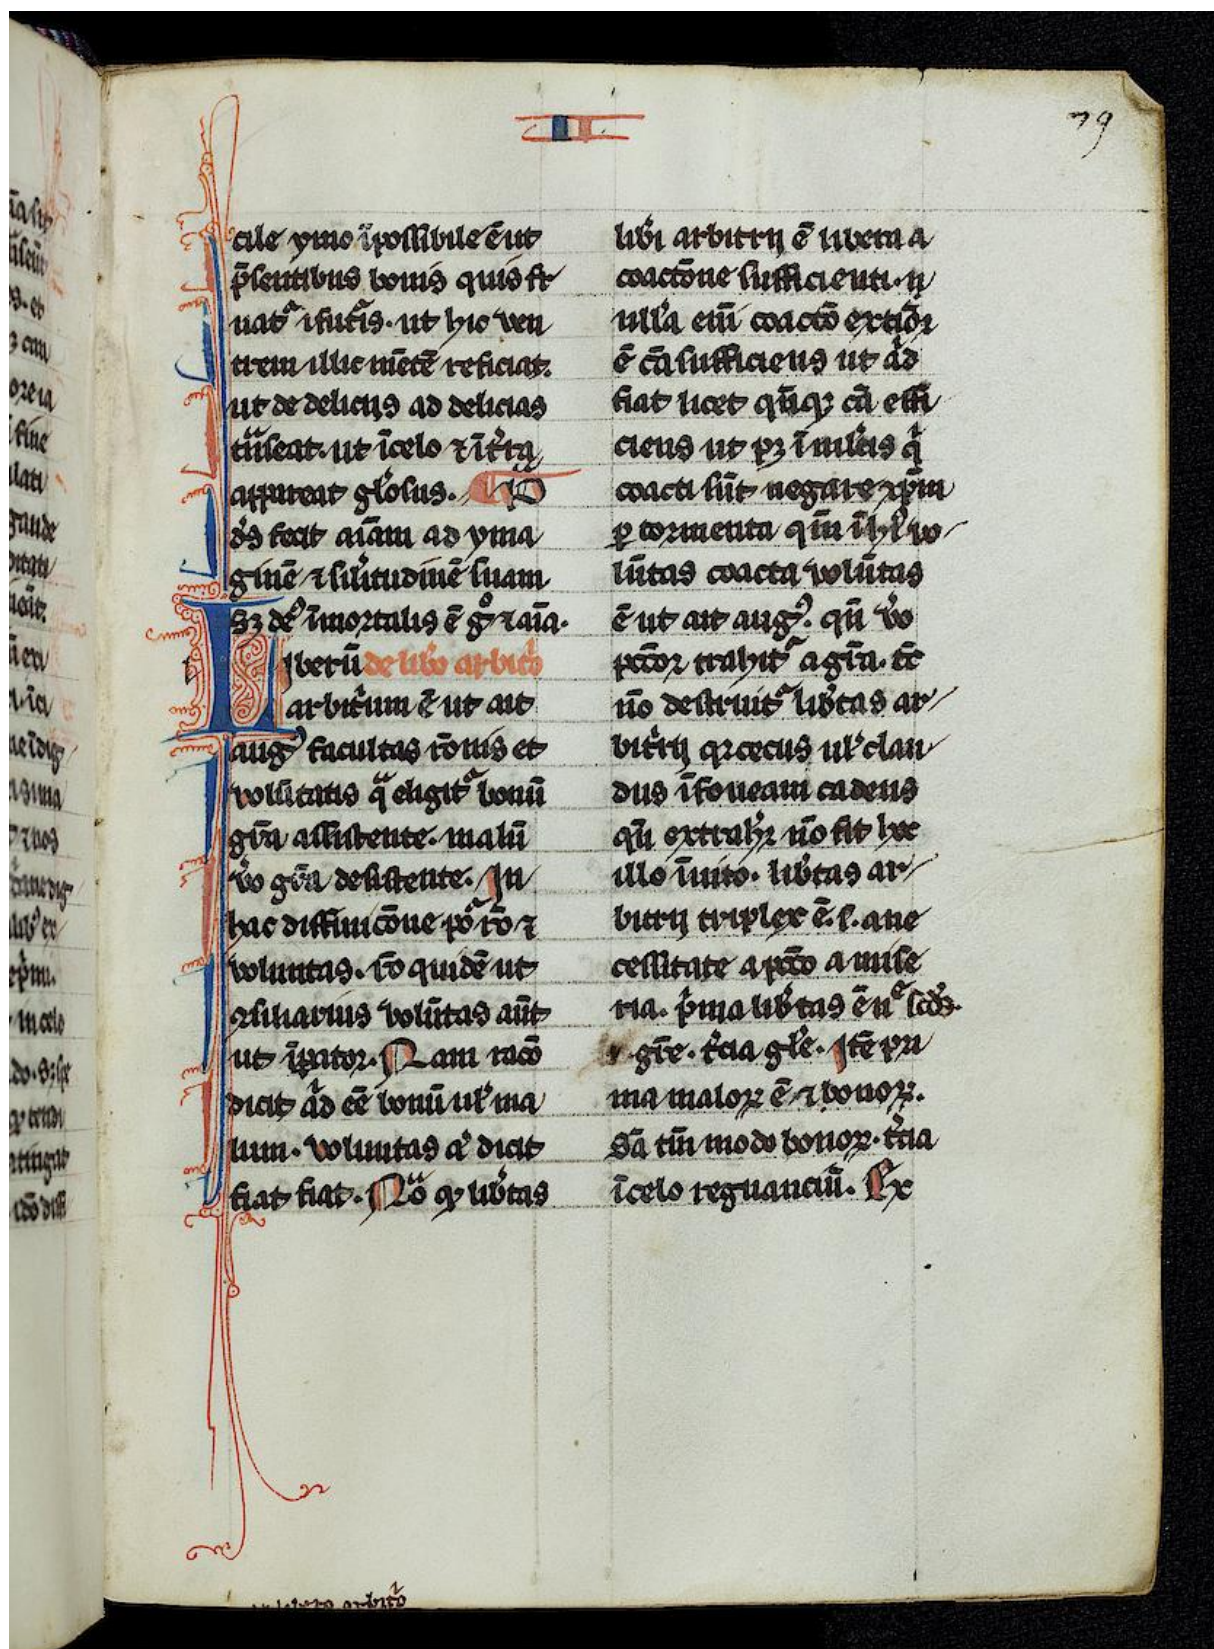 II
79
cile ymo īpossibile ē ut
p̄sentibus bonis quis fr
uat᷑ ⁊ futīs. ut hic uen
trem illic mētē reficiat.
ut de deliciis ad delicias
tͣnseat. ut ī celo ⁊ ī t̄ra
appareat gl̓osus.
ds̄ fecit aīam ad yma
ginē ⁊ sil̓itudinē suam
Sꝫ de᷒ īmortalis ē gͦ ⁊ aīa.
Liberū de lib̓o arbit̓o
arbit̓um ē ut ait
aug᷒ facultas rōnis et
volūtatis qͣ eligit᷑ bonū
gr̄a assistente. malū
v̓o gr̄a desistente. In
hac diffinicōne poͬ rō ⁊
voluntas. rō quidē ut
ꝯsiliarius volūtas aūt
ut īꝑator. Nam racō
dicit qͥd eē bonū ul̓ ma
lum. voluntas aͭ dicit
fiat fiat. Nōͣ ꝙ lib̓tas
lib̓i arbitrii ē libera a
coactōne sufficienti. n
ulla eīm coactō ext̓ior
ē cā sufficiens ut qͥd
fiat licet qn̄qꝫ cā effi
ciens ut pꝫ ī mul̓tis qͥ
coacti sūt negare xp̄m
ꝑ tormenta
lūtas coacta volūtas
ē ut ait aug᷒. qn̄ v̓o
pcc̄or trahit᷑ a gr̄a. tc̄
nō destruit᷑ lib̓tas ar
bit̓ii qꝛ cecus ul̓ clau
dus ī foueam cadens
qn̄ extrahit᷑ nō fit hoc
illo īuito. lib̓tas ar
bitrii triplex ē. s. a ne
cessitate a pccō a mise
ria. p̓ma lib̓tas ē nͤ scd̓a
gr̄e. t̓cia gl̓e. Itē pri
ma maloꝝ ē ⁊ bonoꝝ.
Scd̄a tm̄modo bonoꝝ. t̓cia
ī celo regnanciū. Ex
de libero arbit̓o